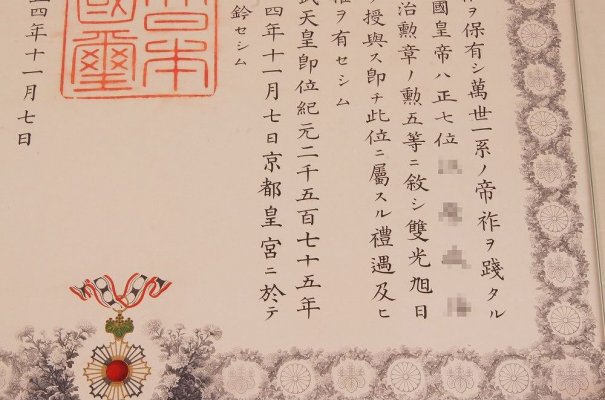 ヲ保有シ萬世一系ノ帝祚ヲ踐タル
國皇帝ハ正七位
治勲章ノ勲五等ニ敘シ雙光旭日
授與ス即チ此位ニ屬スル禮遇及ヒ
ヲ有セシム
武天皇即位紀元二千五百七十五年
四年十一月七日京都皇宮ニ於テ
鈐セシム
四年十一月七日